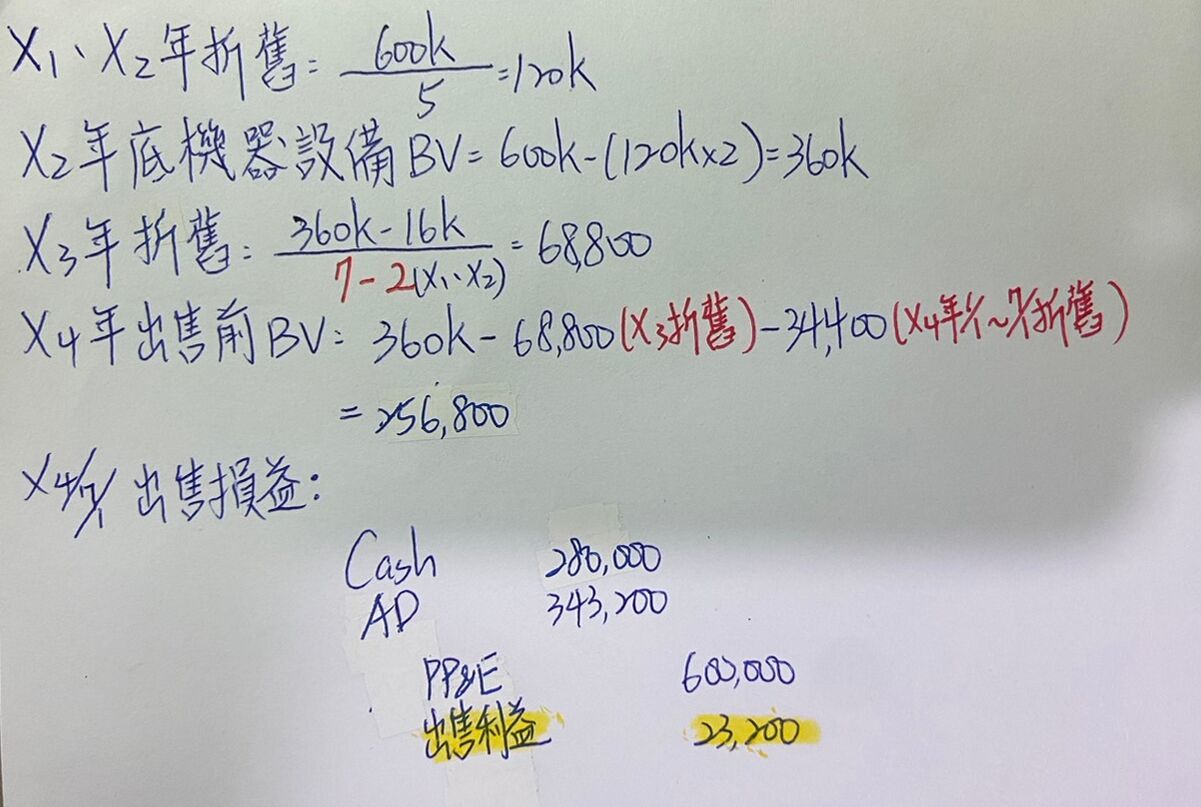 X1、X2年折舊: 600k/5 = 120k
X2年底機器設備BV = 600k-(120k×2)=360k
X3年折舊: 360k-16k/7-2(X1、X2) = 68,800
X4年出售前BV: 360k-68,800(X3折舊)-34,400(X4年1/1~7/1折舊)
= 256,800
X4/7/1 出售損益:
Cash 280,000
AD 343,200
PP&E 600,000
出售利益 23,200